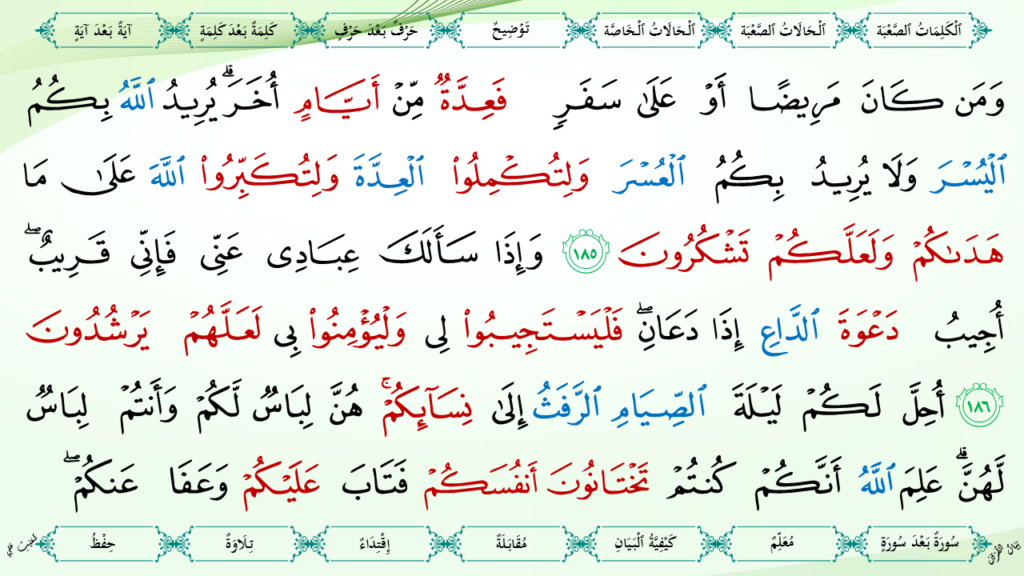 اَلْكَلِمَاتُ الصَّعْبَة اَلْحَالَاتُ الصَّعْبَة اَلْحَالَاتُ الْخَاصَّة تَوْضِيحٌ حَرْفٌ بَعْدَ حَرْفٍ كَلِمَةٌ بَعْدَ كَلِمَةٍ آيَةٌ بَعْدَ آيَةٍ
وَمَن كَانَ مَرِيضًا أَوْ عَلَىٰ سَفَرٍ فَعِدَّةٌ مِّنْ أَيَّامٍ أُخَرَ ۗ يُرِيدُ ٱللَّهُ بِكُمُ
ٱلْيُسْرَ وَلَا يُرِيدُ بِكُمُ ٱلْعُسْرَ وَلِتُكْمِلُوا۟ ٱلْعِدَّةَ وَلِتُكَبِّرُوا۟ ٱللَّهَ عَلَىٰ مَا
هَدَىٰكُمْ وَلَعَلَّكُمْ تَشْكُرُونَ ١٨٥ وَإِذَا سَأَلَكَ عِبَادِى عَنِّى فَإِنِّى قَرِيبٌ ۖ
أُجِيبُ دَعْوَةَ ٱلدَّاعِ إِذَا دَعَانِ ۖ فَلْيَسْتَجِيبُوا۟ لِى وَلْيُؤْمِنُوا۟ بِى لَعَلَّهُمْ يَرْشُدُونَ
١٨٦ أُحِلَّ لَكُمْ لَيْلَةَ ٱلصِّيَامِ ٱلرَّفَثُ إِلَىٰ نِسَآئِكُمْ ۚ هُنَّ لِبَاسٌ لَّكُمْ وَأَنتُمْ لِبَاسٌ
لَّهُنَّ ۗ عَلِمَ ٱللَّهُ أَنَّكُمْ كُنتُمْ تَخْتَانُونَ أَنفُسَكُمْ فَتَابَ عَلَيْكُمْ وَعَفَا عَنكُمْ ۖ
سُورَةٌ بَعْدَ سُورَةٍ مُعَلِّمٌ كَيْفِيَّةُ الْبَيَانِ مُقَابَلَةٌ إِقْتِدَاءٌ تِلَاوَةٌ حِفْظٌ